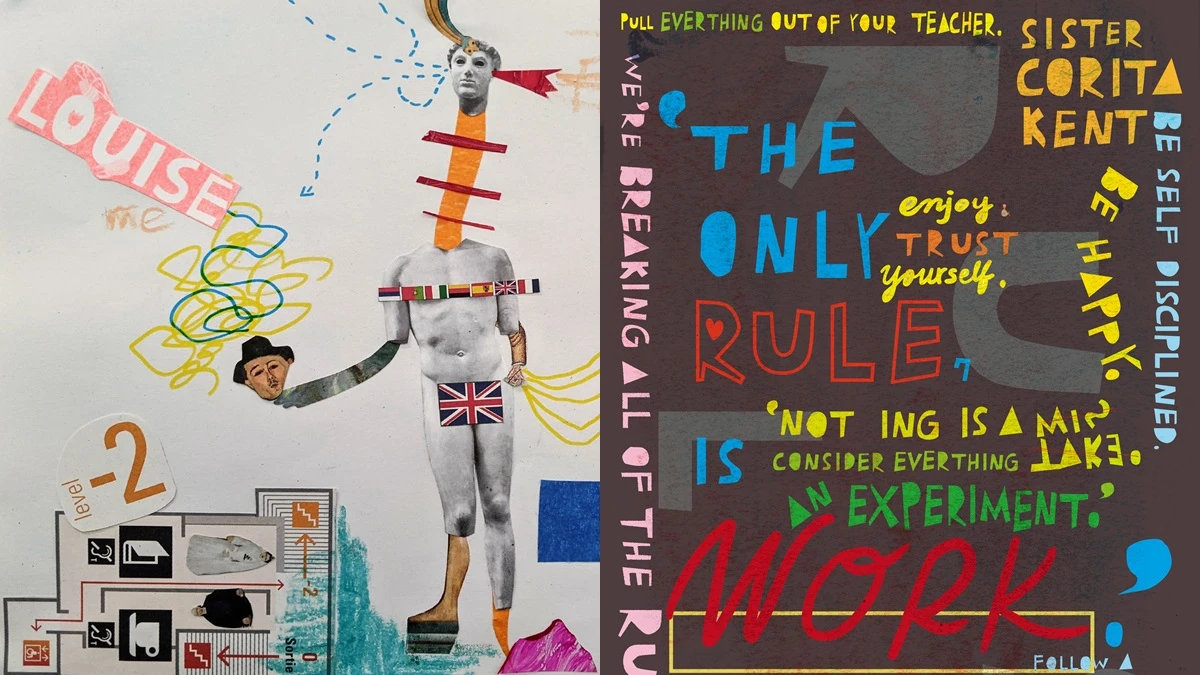 LOUISE
me
level
-2
-2
0
Sortie
PULL EVERTHING OUT OF YOUR TEACHER.
SISTER
CORITA
KENT
WE'RE BREAKING ALL OF THE RU
'THE
ONLY
enjoy.
TRUST
yourself.
RULE,
7
IS
'NOT ING IS A MIS
TAKE.
CONSIDER EVERTHING
AN EXPERIMENT.'
WORK
BE HAPPY.
BE SELF DISCIPLINED.
FOLLOW A